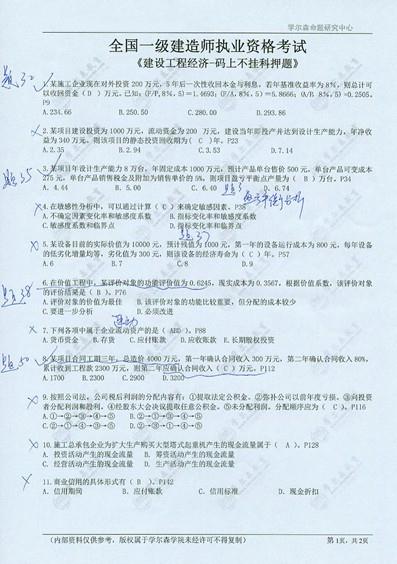 学尔森命题研究中心
全国一级建造师执业资格考试
《建设工程经济-码上不挂科押题》
1.某施工企业现在对外投资 200 万元，5 年后一次性收回本金与利息，若年基准收益率为 8%，则总计可
以收回资金（ D ）万元。已知：(F/P, 8%, 5)=1.4693; (F/A, 8%, 5)=5.8666; (A/P, 8%, 5)=0.2505。
P9
A.234.66 B.250.50 C.280.00 D.293.86
2.某项目建设投资为 1000 万元，流动资金为 200 万元，建设当年即投产并达到设计生产能力，年净收
益为 340 万元。则该项目的静态投资回收期为（ C ）年。P23
A.2.35 B.2.94 C.3.53 D.7.14
3.某项目年设计生产能力 8 万台，年固定成本 1000 万元，预计产品单台售价 500 元，单台产品可变成本
275 元，单台产品销售税金及附加为销售单价的 5%，则项目盈亏平衡点产量为（ B ）万台。P34
A.4.44 B.5.00 C.6.40 D.6.74
4.在敏感性分析中，可以通过计算（ C ）来确定敏感因素。P38
A.不确定因素变化率和敏感度系数 B.指标变化率和敏感度系数
C.敏感度系数和临界点 D.指标变化率和临界点
题37
5.某设备目前的实际价值为 10000 元，预计残值为 1000 元，第一年的设备运行成本为 800 元，每年设备
的低劣化增量均等，劣化值为 300 元，则该设备的经济寿命为（ C ）年。P57
A.6 B.7 C.8 D.9
题38
6.在价值工程中，某评价对象的功能评价值为 0.6245，现实成本为 0.3567，根据价值系数，该评价对象
的评价结果是（ B ）。P76
A.评价对象的价值为最佳 B.该评价对象的功能比较重要，但分配的成本较少
C.要进一步分析 D.必须改进
7.下列各项中属于企业流动资产的是（ ABD ）。P88
A.货币资金 B.存货 C.应付账款 D.应收账款 E.长期股权投资
题50
8.某项目合同工期三年，总造价 4000 万元，第一年确认合同收入 300 万元，第二年确认合同收入 80%，
累计收到工程款 2300 万元，则第二年应确认合同收入（ C ）万元。P112
A.1700 B.2300 C.2900 D.3200
9.按照公司法，公司税后利润的分配内容有：①提取法定公积金。②弥补公司以前年度亏损。③向投资
者分配利润和股利。④经股东大会决议提取任意公积金。⑤未分配利润。分配顺序应为（ C ）。P116
10.施工总承包企业为扩大生产购买大型塔式起重机产生的现金流量属于（ A ）。P128
A. 投资活动产生的现金流量 B. 筹资活动产生的现金流量
C. 经营活动产生的现金流量 D. 生产活动产生的现金流量
11.商业信用的具体形式有（ B ）。P142
A. 信用期间 B. 应付账款 C. 信用标准 D. 现金折扣
（内部资料仅供参考，版权属于学尔森学院未经许可不得复制） 第 1页，共 2页